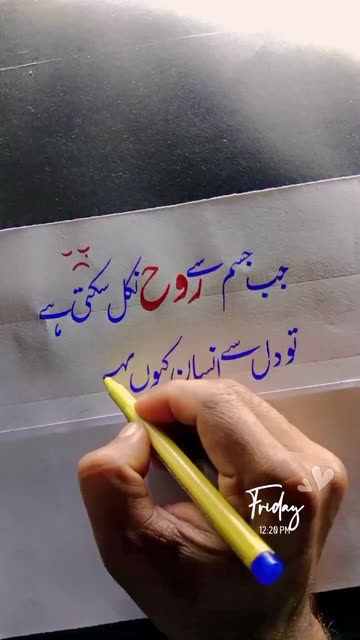 جب جسم سے روح نکل سکتی ہے
تو دل سے انسان کیوں
Friday
12:20 PM